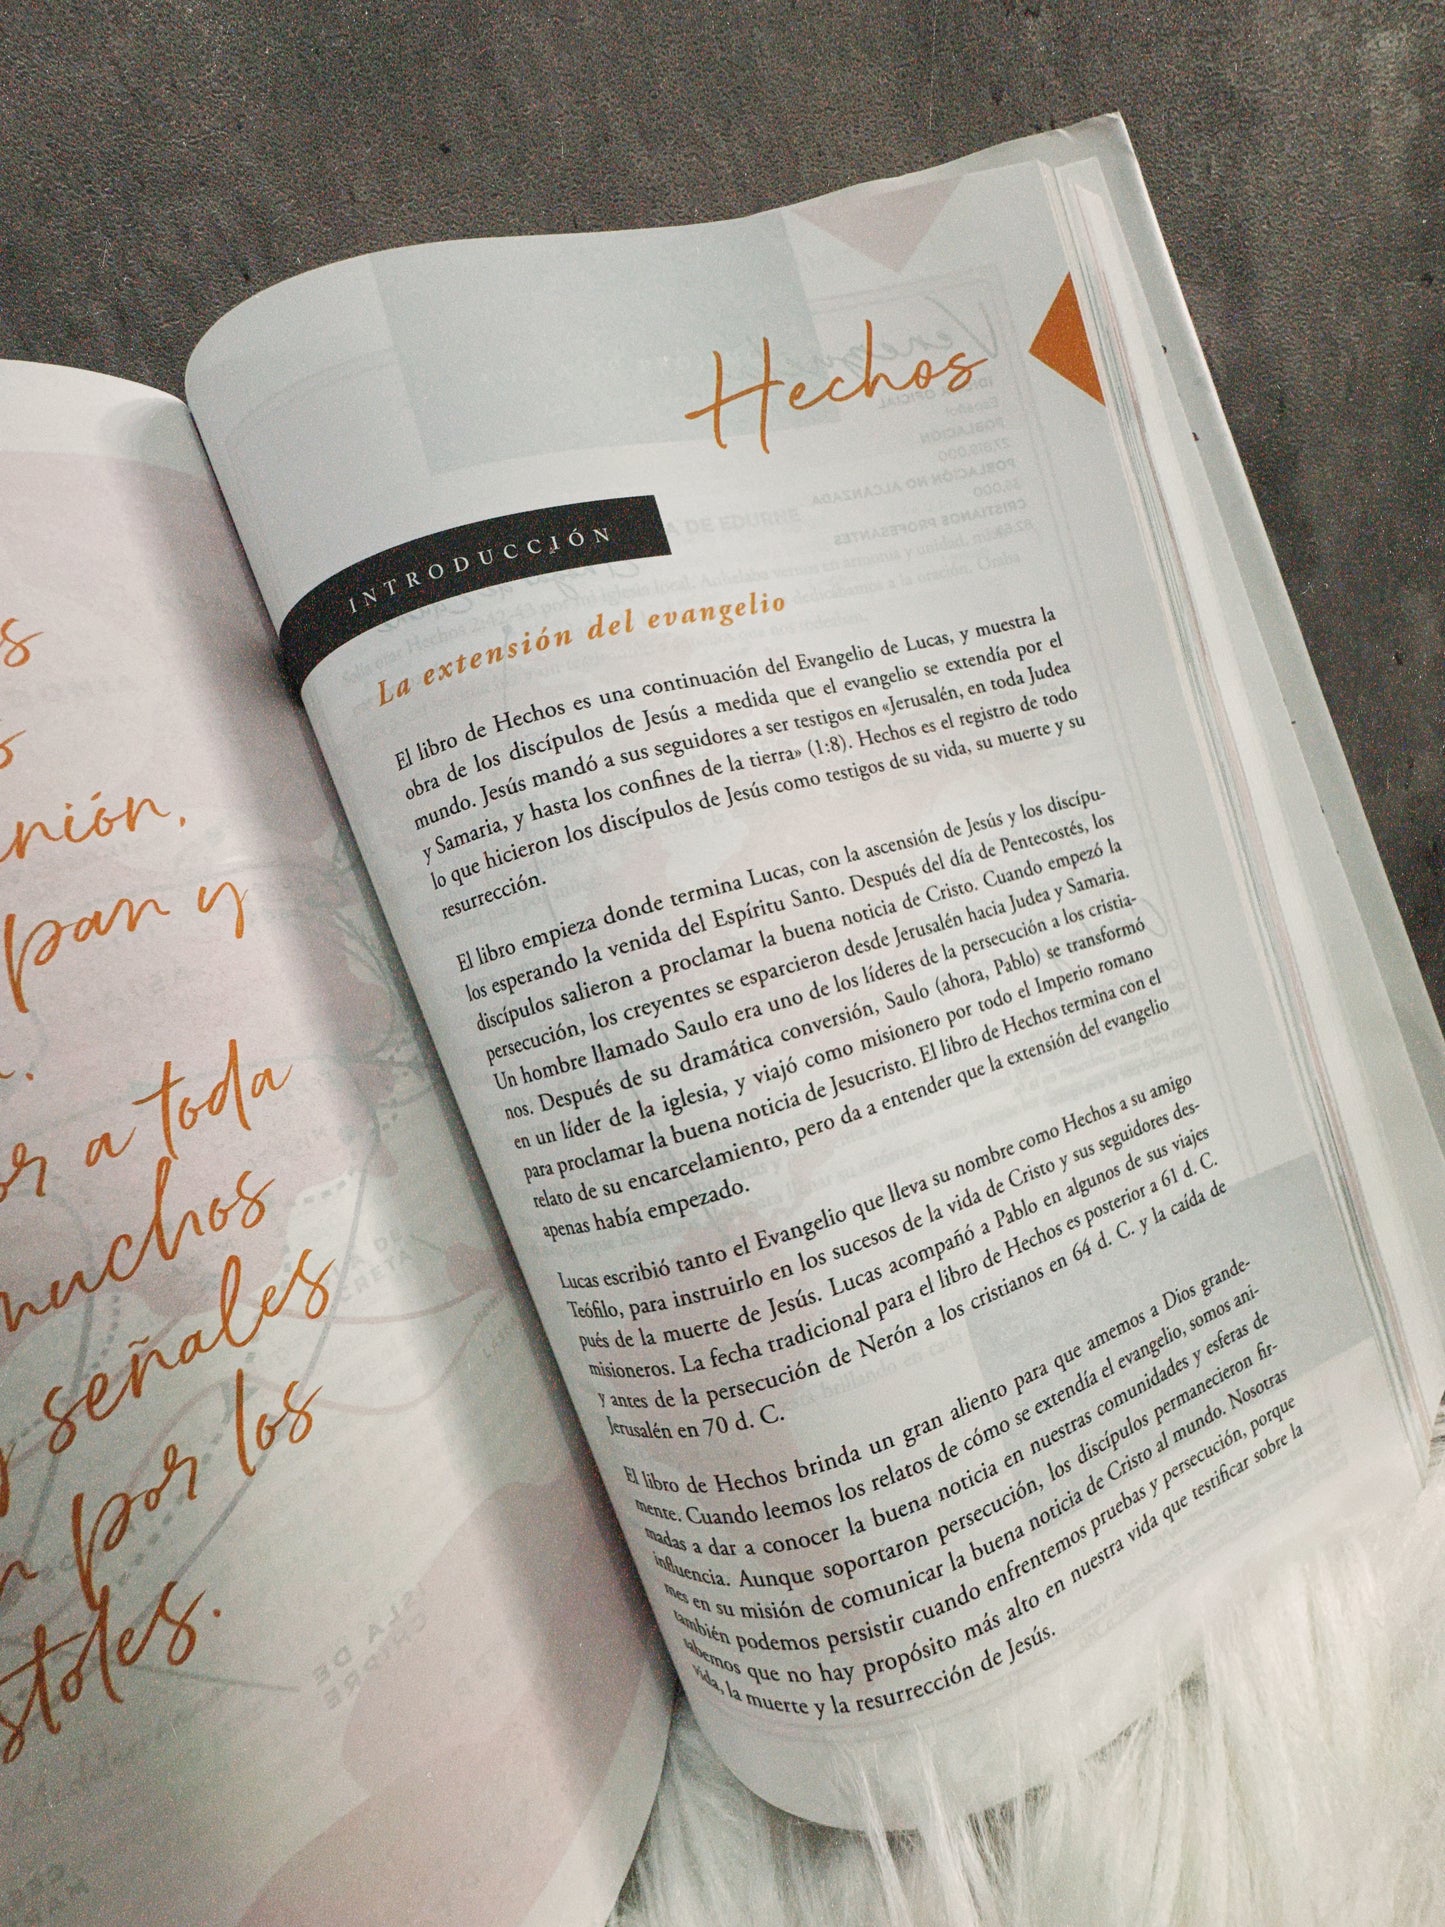 s
s
nión,
pan y
or a toda
muchos
y señales
n por los
stoles.
Hechos
INTRODUCCIÓN
La extensión del evangelio
El libro de Hechos es una continuación del Evangelio de Lucas, y muestra la
obra de los discípulos de Jesús a medida que el evangelio se extendía por el
mundo. Jesús mandó a sus seguidores a ser testigos en «Jerusalén, en toda Judea
y Samaria, y hasta los confines de la tierra» (1:8). Hechos es el registro de todo
lo que hicieron los discípulos de Jesús como testigos de su vida, su muerte y su
resurrección.
El libro empieza donde termina Lucas, con la ascensión de Jesús y los discípu-
los esperando la venida del Espíritu Santo. Después del día de Pentecostés, los
discípulos salieron a proclamar la buena noticia de Cristo. Cuando empezó la
persecución, los creyentes se esparcieron desde Jerusalén hacia Judea y Samaria.
Un hombre llamado Saulo era uno de los líderes de la persecución a los cristia-
nos. Después de su dramática conversión, Saulo (ahora, Pablo) se transformó
en un líder de la iglesia, y viajó como misionero por todo el Imperio romano
para proclamar la buena noticia de Jesucristo. El libro de Hechos termina con el
relato de su encarcelamiento, pero da a entender que la extensión del evangelio
apenas había empezado.
Lucas escribió tanto el Evangelio que lleva su nombre como Hechos a su amigo
Teófilo, para instruirlo en los sucesos de la vida de Cristo y sus seguidores des-
pués de la muerte de Jesús. Lucas acompañó a Pablo en algunos de sus viajes
misioneros. La fecha tradicional para el libro de Hechos es posterior a 61 d. C.
y antes de la persecución de Nerón a los cristianos en 64 d. C. y la caída de
Jerusalén en 70 d. C.
El libro de Hechos brinda un gran aliento para que amemos a Dios grande-
mente. Cuando leemos los relatos de cómo se extendía el evangelio, somos ani-
madas a dar a conocer la buena noticia en nuestras comunidades y esferas de
influencia. Aunque soportaron persecución, los discípulos permanecieron fir-
mes en su misión de comunicar la buena noticia de Cristo al mundo. Nosotras
también podemos persistir cuando enfrentemos pruebas y persecución, porque
sabemos que no hay propósito más alto en nuestra vida que testificar sobre la
vida, la muerte y la resurrección de Jesús.